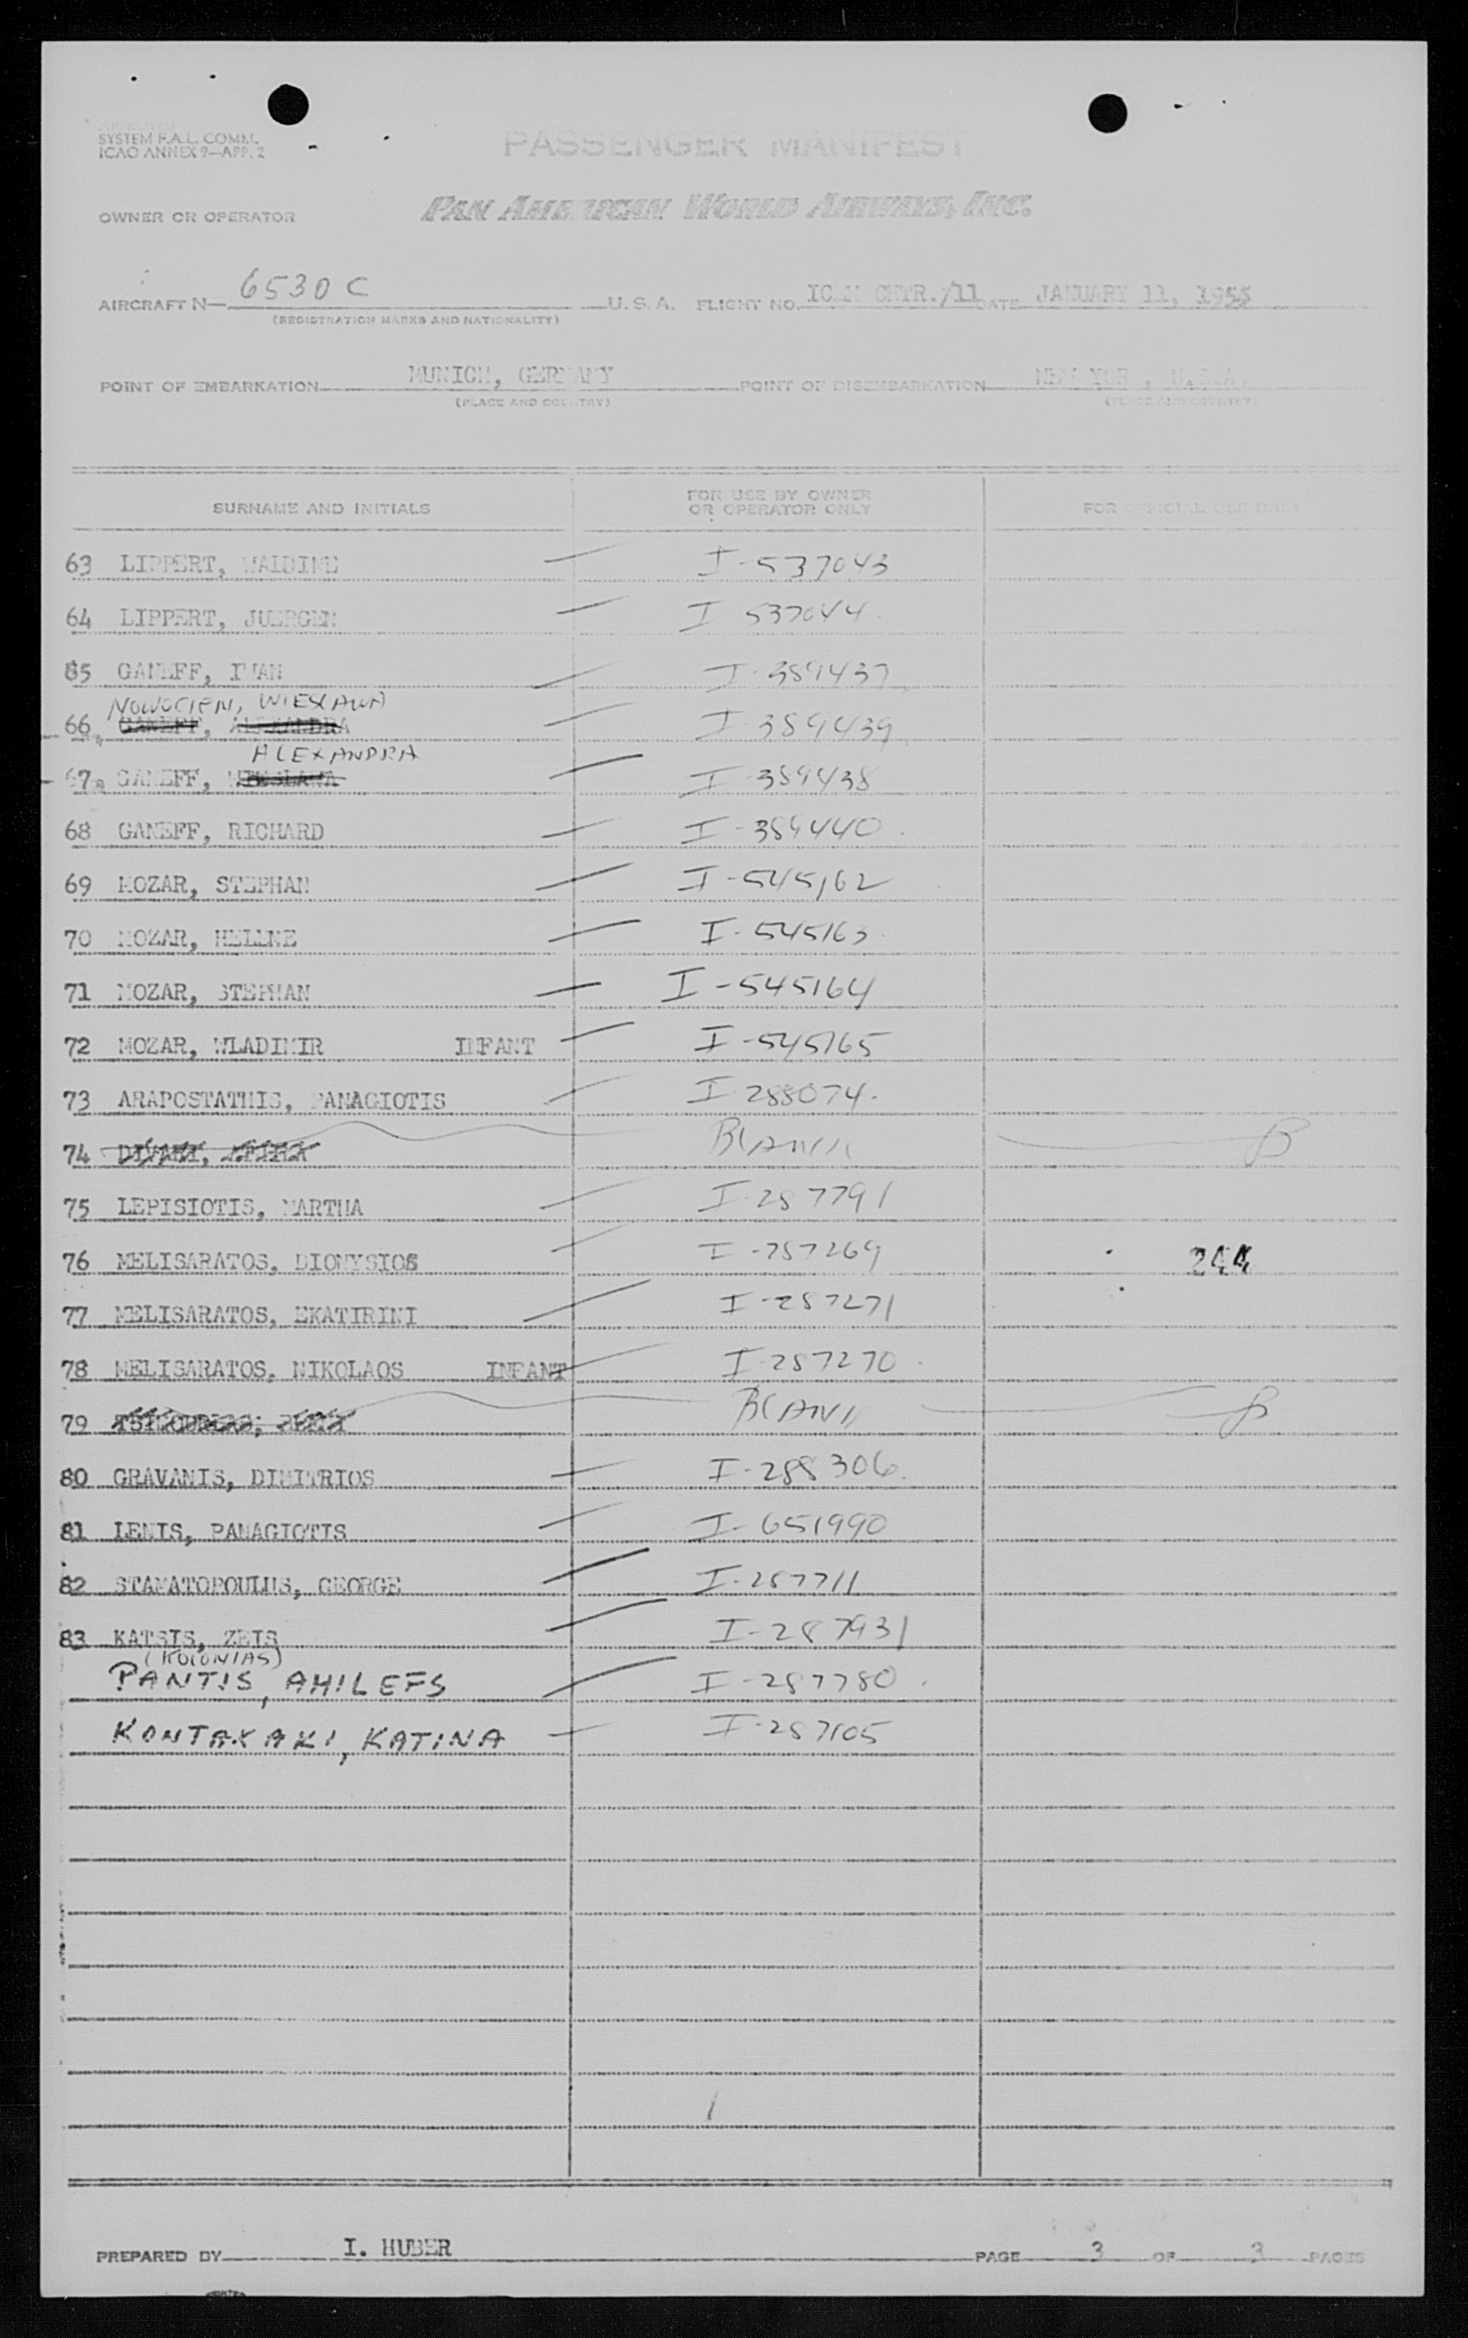 SYSTEM F.A.L. COMM.
ICAO ANNEX 9—APP. 2
PASSENGER MANIFEST
OWNER OR OPERATOR PAN AMERICAN WORLD AIRWAYS, INC.
AIRCRAFT N— 6530C U.S.A. FLIGHT NO. CHTR./11 DATE JANUARY 11, 1955
(REGISTRATION MARKS AND NATIONALITY)
POINT OF EMBARKATION MUNICH, GERMANY POINT OF DISEMBARKATION NEW YORK, U.S.A.
(PLACE AND COUNTRY) (PLACE AND COUNTRY)
SURNAME AND INITIALS FOR USE BY OWNER OR OPERATOR ONLY FOR OFFICIAL USE ONLY
63 LIPPERT, I-537043
64 LIPPERT, JUERGEN I 537044
65 GANEFF, IWAN I-389437
NOWOCIEN, WIESLAWA
66 GANEFF, ALEXANDRA I-389439
ALEXANDRA
67 GANEFF, I-389438
68 GANEFF, RICHARD I-389440
69 MOZAR, STEPHAN I-545162
70 MOZAR, HELENE I-545163
71 MOZAR, STEPHAN I-545164
72 MOZAR, WLADIMIR INFANT I-545165
73 ARAPOSTATHIS, PANAGIOTIS I-288074
74 BLANK B
75 LEPISIOTIS, MARTHA I-287791
76 MELISARATOS, DIONYSIOS I-287269 244
77 MELISARATOS, EKATIRINI I-287271
78 MELISARATOS, NIKOLAOS INFANT I-287270
79 BLANK B
80 GRAVANIS, DIMITRIOS I-288306
81 LEMIS, PANAGIOTIS I-651990
82 STAMATOPOULUS, GEORGE I-287711
83 KATSIS, ZEIS I-287931
(KOLONIAS)
PANTIS, AHILEFS I-287780
KONTAXAKI, KATINA I-287105
PREPARED BY I. HUBER PAGE 3 OF 3 PAGES